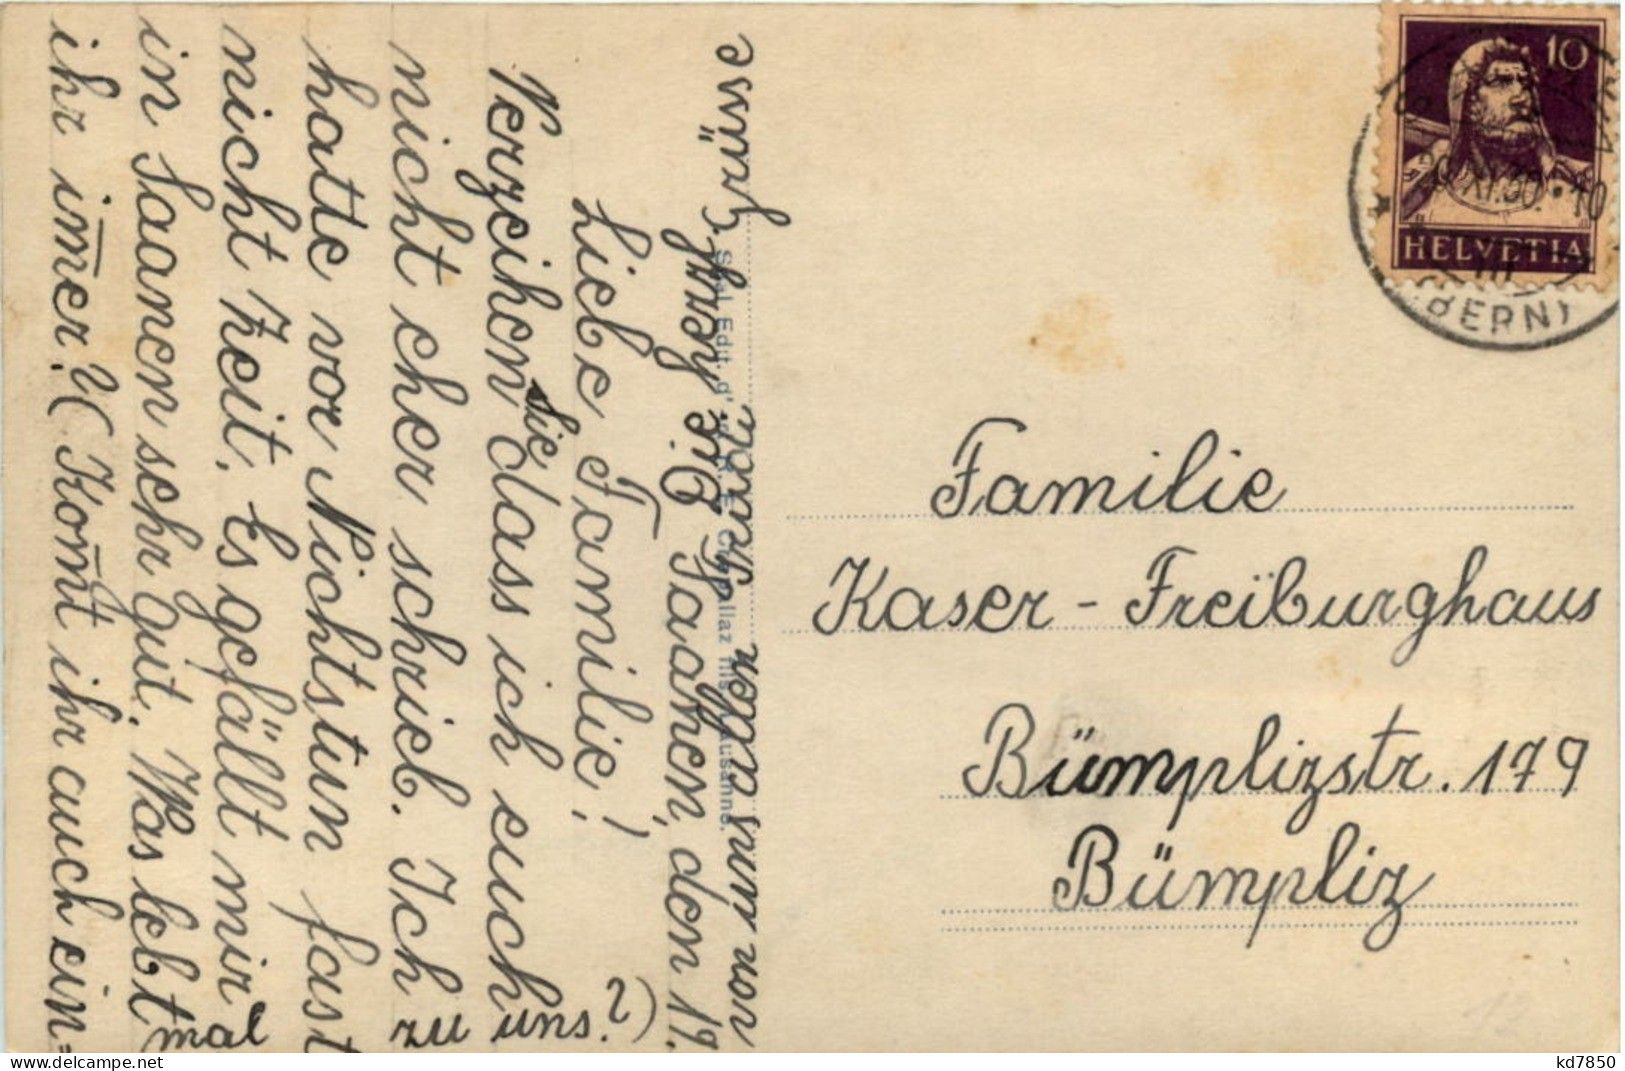 Saanen, den 19.
Liebe Familie!
Verzeihen Sie dass ich euch
nicht eher schrieb. Ich
hatte vor Nichtstun fast
nicht Zeit. Es gefällt mir
in Saanen sehr gut. Was lebt
ihr im̅er? (Kom̅t ihr auch ein=
mal zu uns?)
Grüsse
von uns allen Trudi
Familie
Kaser - Freiburghaus
Bümplizstr. 179
Bümpliz
10
HELVETIA
20.XI.30.-10
III
(BERN)
12
kd7850